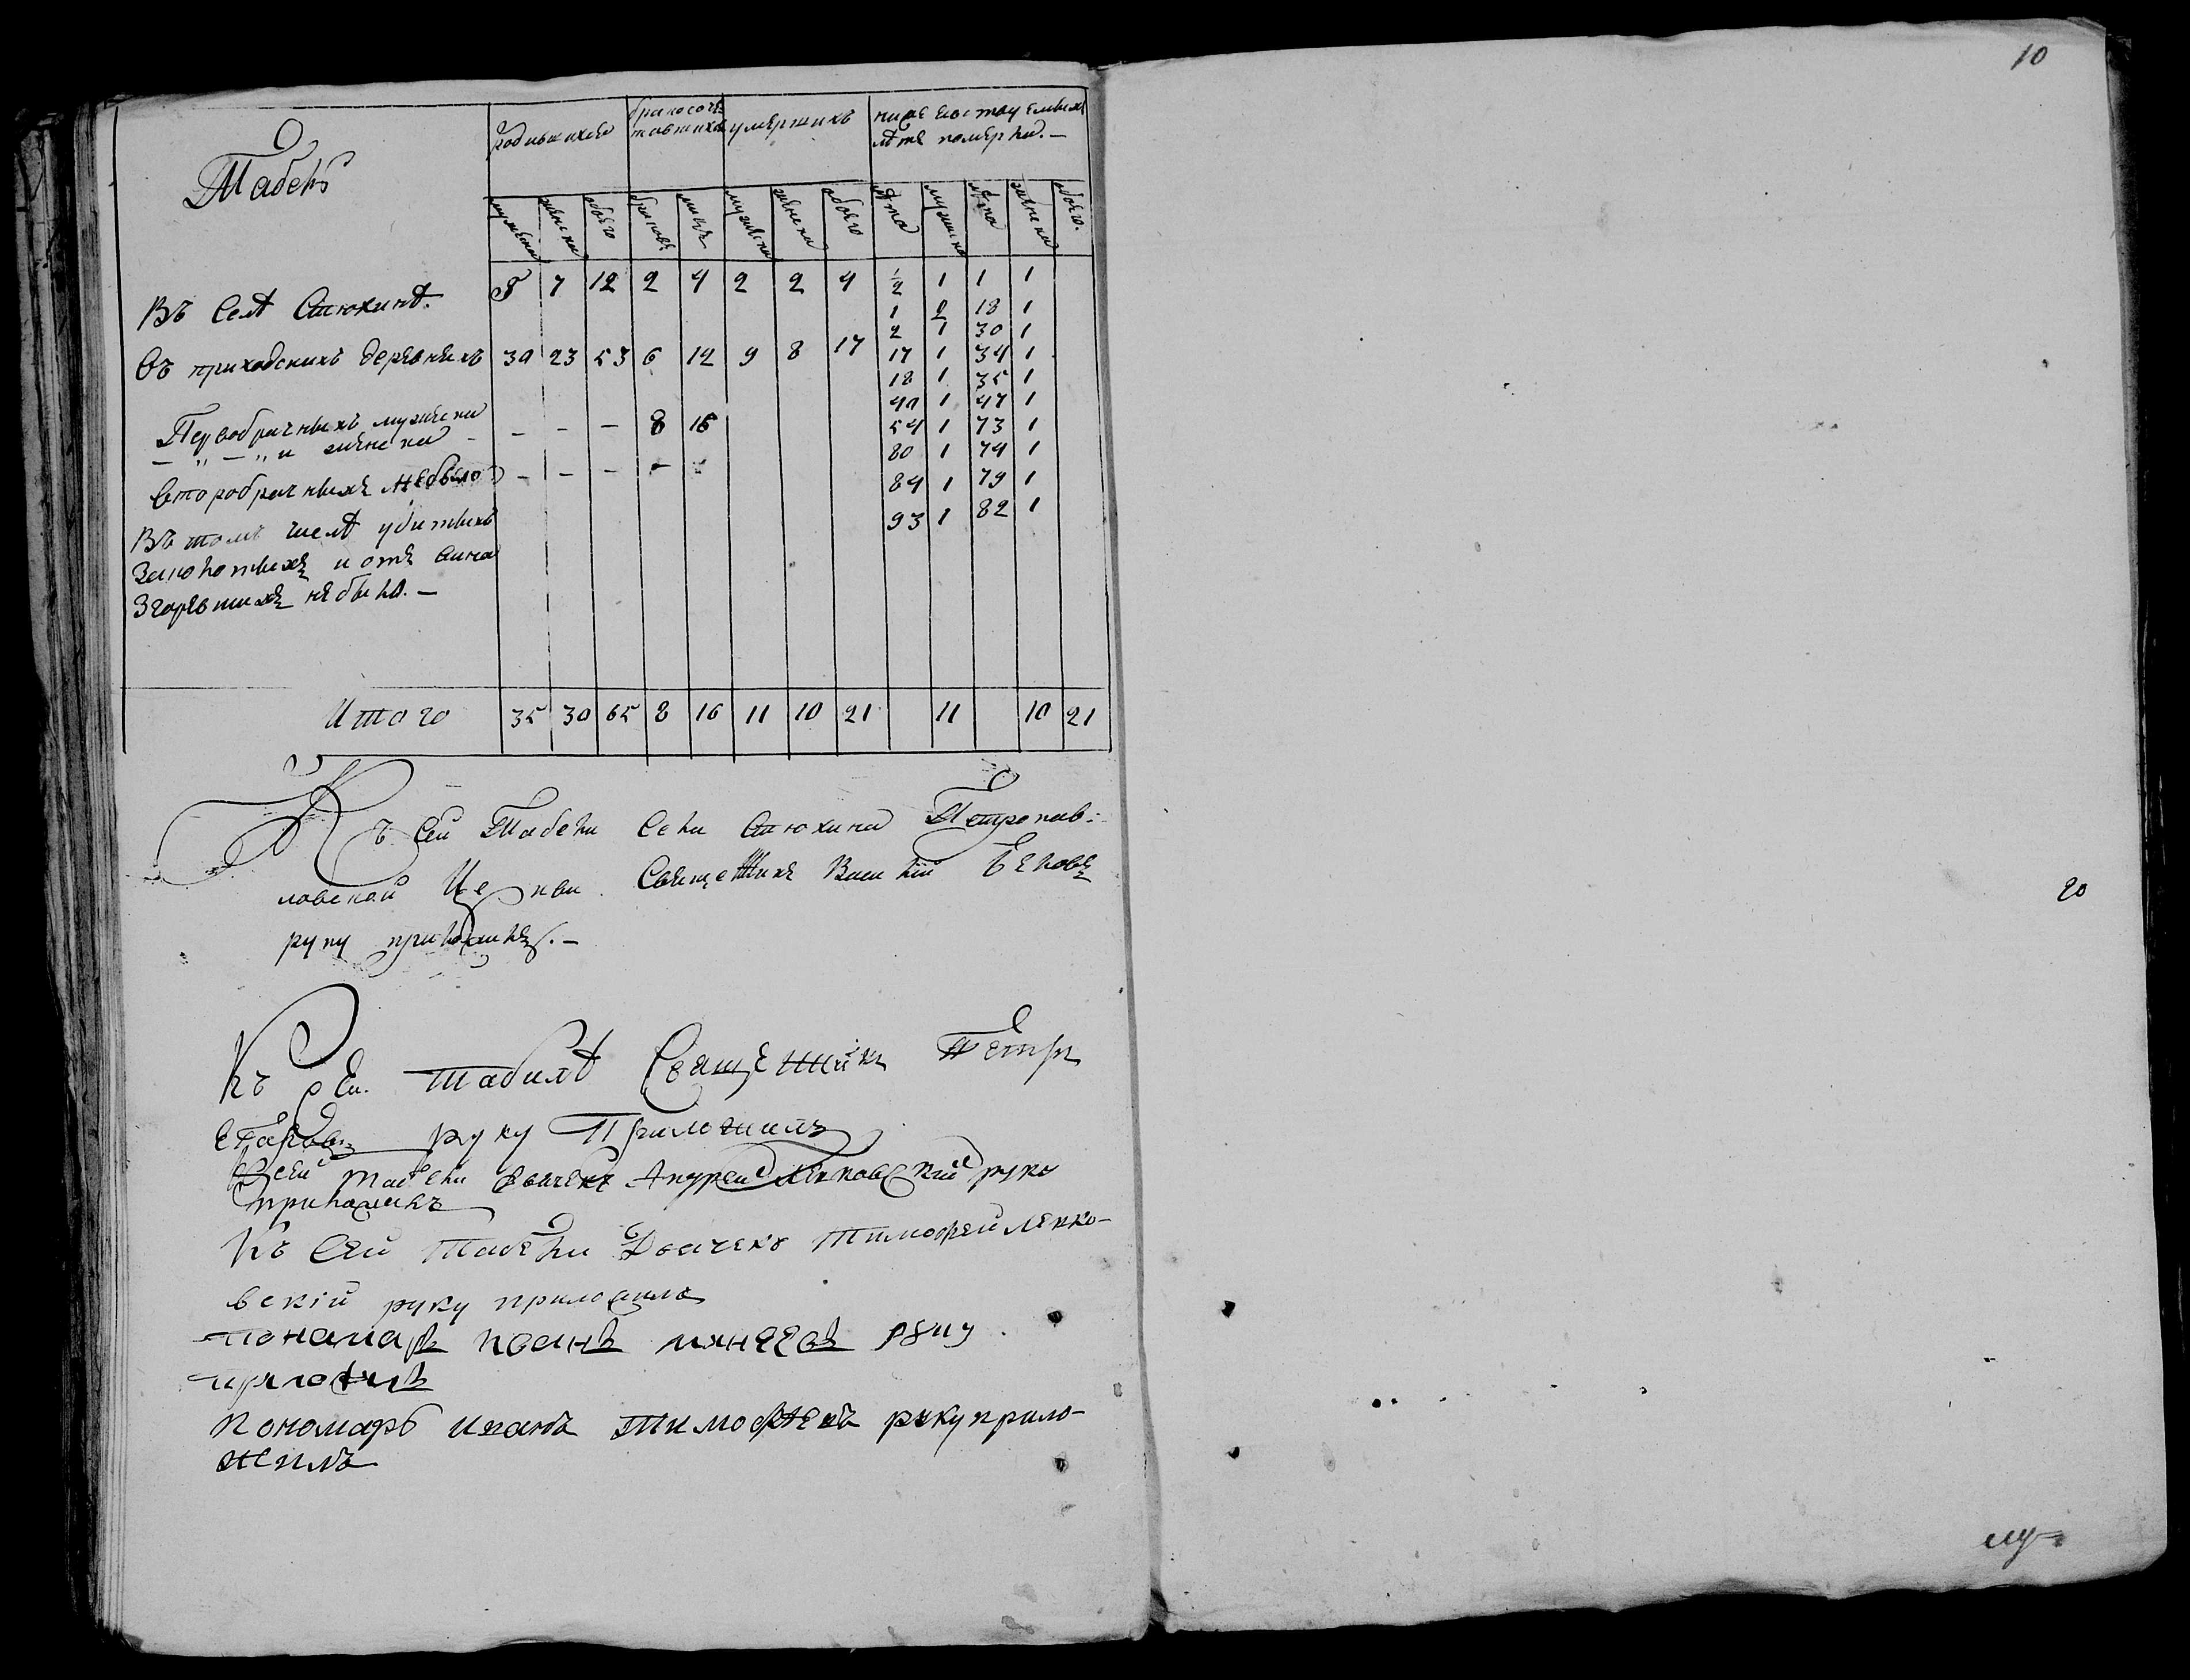 10
Табель
родившихся
бракосоче-
тавшихся
умершихъ
ниже
лѣте померли. —
мужеска
женска
обоего
браковъ
лицъ
мужеска
женска
обоего
лѣта
мужеска
лѣта
женска
обоего.
Въ Селѣ Стюхинѣ. 5 7 12 2 4 2 2 4 ½ 1 1 1
1 2 18 1
2 1 30 1
Въ приходскихъ деревняхъ 30 23 53 6 12 9 8 17 17 1 34 1
18 1 35 1
40 1 47 1
Первобрачныхъ мужеска
— „ — „ и женска — — — 8 16 54 1 73 1
80 1 74 1
Второбрачныхъ небыло — — — — 84 1 79 1
Въ томъ числѣ убитыхъ 93 1 82 1
и отъ
Згоревшихъ небыло. —
Итого 35 30 65 8 16 11 10 21 11 10 21
Къ сей Табели Села Стюхина Петропав-
ловской Церкви Священникъ Василій Бѣловъ
руку приложилъ. —
20
Къ сей табилѣ Священникъ Петръ
руку Приложилъ
Ксей табели дьячекъ Андрей Ленковскій руку
приложилъ
Къ Сей Табели Дьячекъ Тимофей Ленко-
вскій руку приложилъ
понамарь Иванъ руку
приложилъ
Пономарь Иванъ Тимофеевъ руку прило-
жилъ